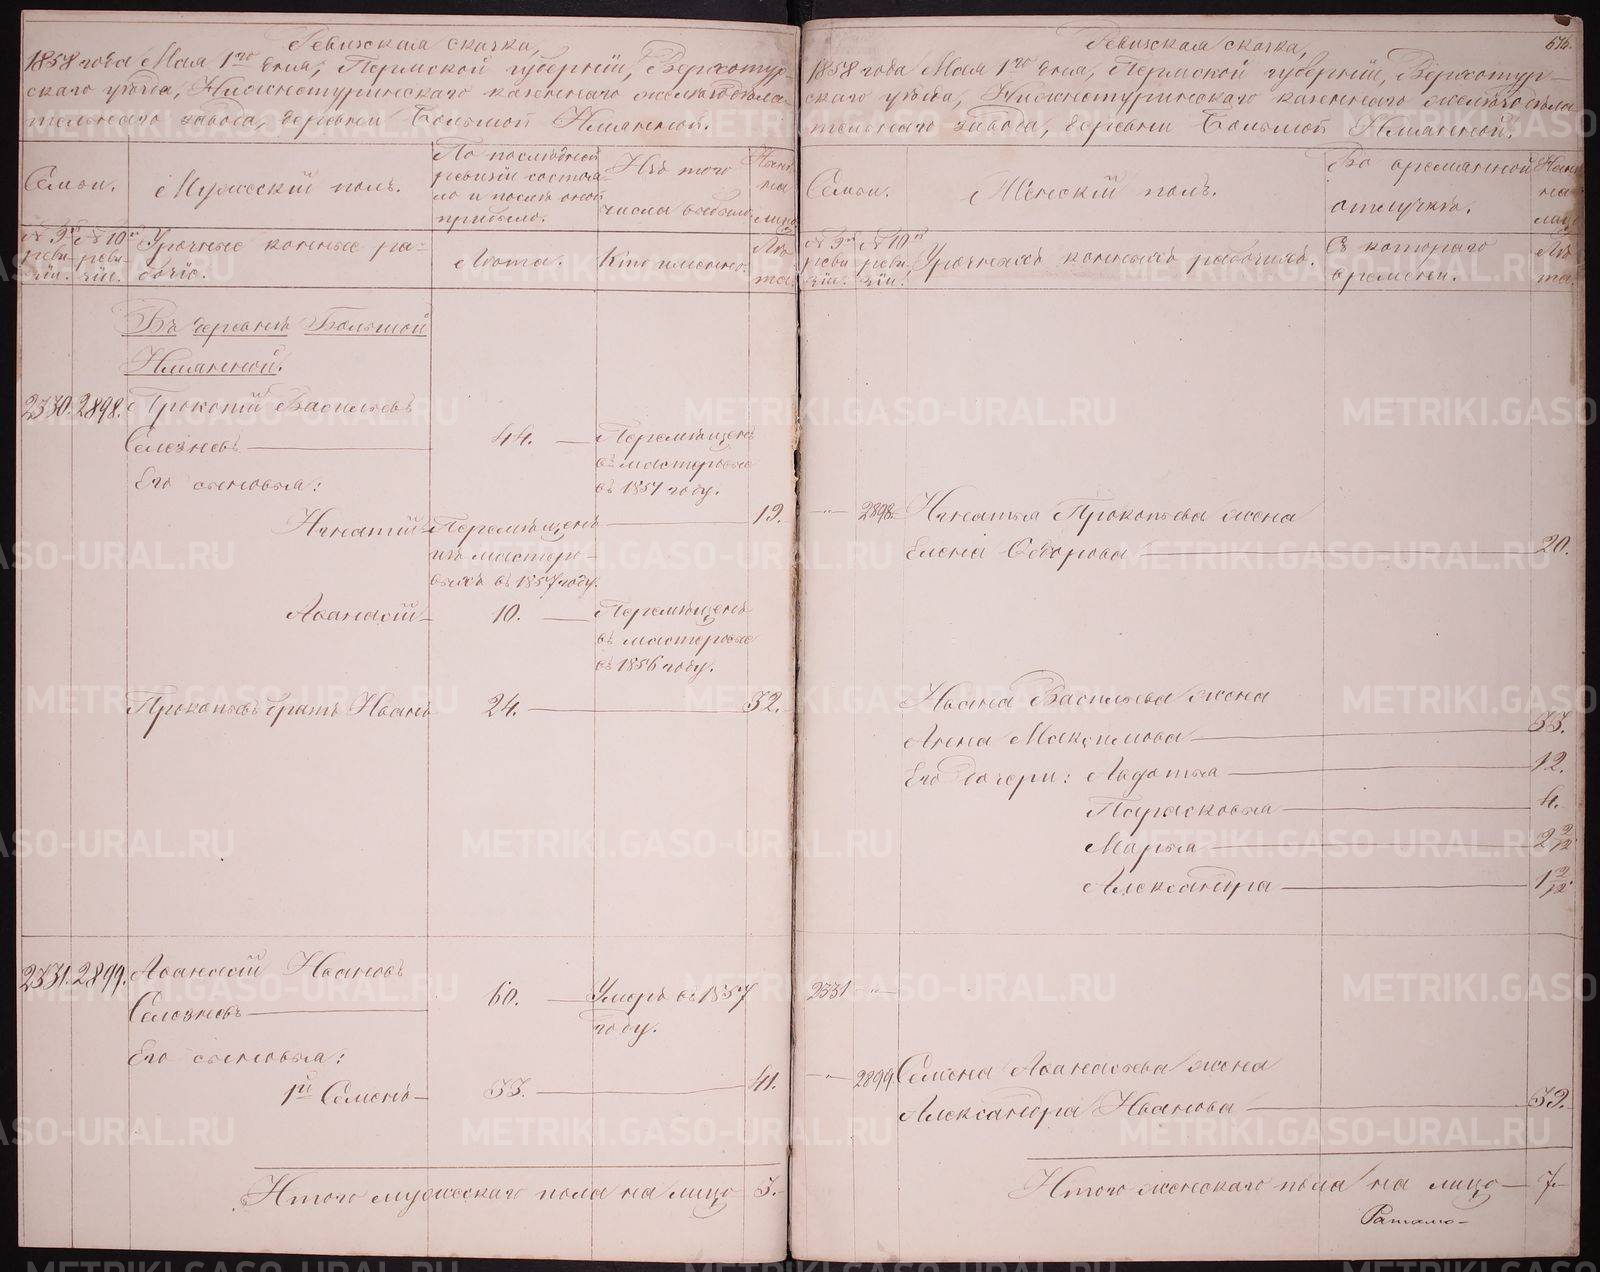 Ревизская сказка,
1858 года Мая 1го дня, Пермской губернiи, Верхотур-
скаго уѣзда, Нижнетуринскаго казеннаго желѣзодѣла-
тельнаго завода, деревни Большой Именной.
Семьи.
Мужескiй полъ.
По последней
ревизiи состоя-
ло и послѣ оной
прибыло.
Изъ того
числа выбыло.
Нынѣ
на
лицо
№ 9й
реви-
зiи.
№ 10й
реви-
зiи.
Урочные конные ра-
бочiе.
Лѣта.
Кто именно.
Лѣ
та.
Въ деревнѣ Большой
Именной.
2330. 2898. Прокопiй Васильевъ
Селезневъ 44. Перемѣщенъ
въ мастеровые
въ 1857 году.
Его сыновья:
Игнатiй Перемѣщенъ 19.
изъ мастеро-
выхъ въ 1857 году.
Аѳанасiй 10. Перемѣщенъ
въ мастеровые
въ 1856 году.
Прокопьевъ братъ Иванъ 24. 32.
2331. 2899. Аѳанасiй Ивановъ
Селезневъ 60. Умеръ въ 1857
году.
Его сыновья:
1й Семенъ 33. 41.
Итого мужескаго пола на лицо 3.
676.
Ревизская сказка,
1858 года Мая 1го дня, Пермской губернiи, Верхотур-
скаго уѣзда, Нижнетуринскаго казеннаго желѣзодѣла-
тельнаго завода, деревни Большой Именной.
Семьи.
Женскiй полъ.
Во временной
отлучкѣ.
Нынѣ
на
лицо
№ 9й
реви
зiи.
№ 10й
реви-
зiи.
Урочныхъ конныхъ рабочихъ.
Съ котораго
времени.
Лѣ
та.
2898. Игнатья Прокопьева жена
Елена Ѳедорова 20.
Ивана Васильева жена
Анна Максимова 33.
Его дочери: Авдотья 12.
Парасковья 4.
Марья 2 2/12
Александра 1 2/12.
2331
2899. Семена Аѳанасьева жена
Александра Иванова 39.
Итого женскаго пола на лицо 7.
Ратма-